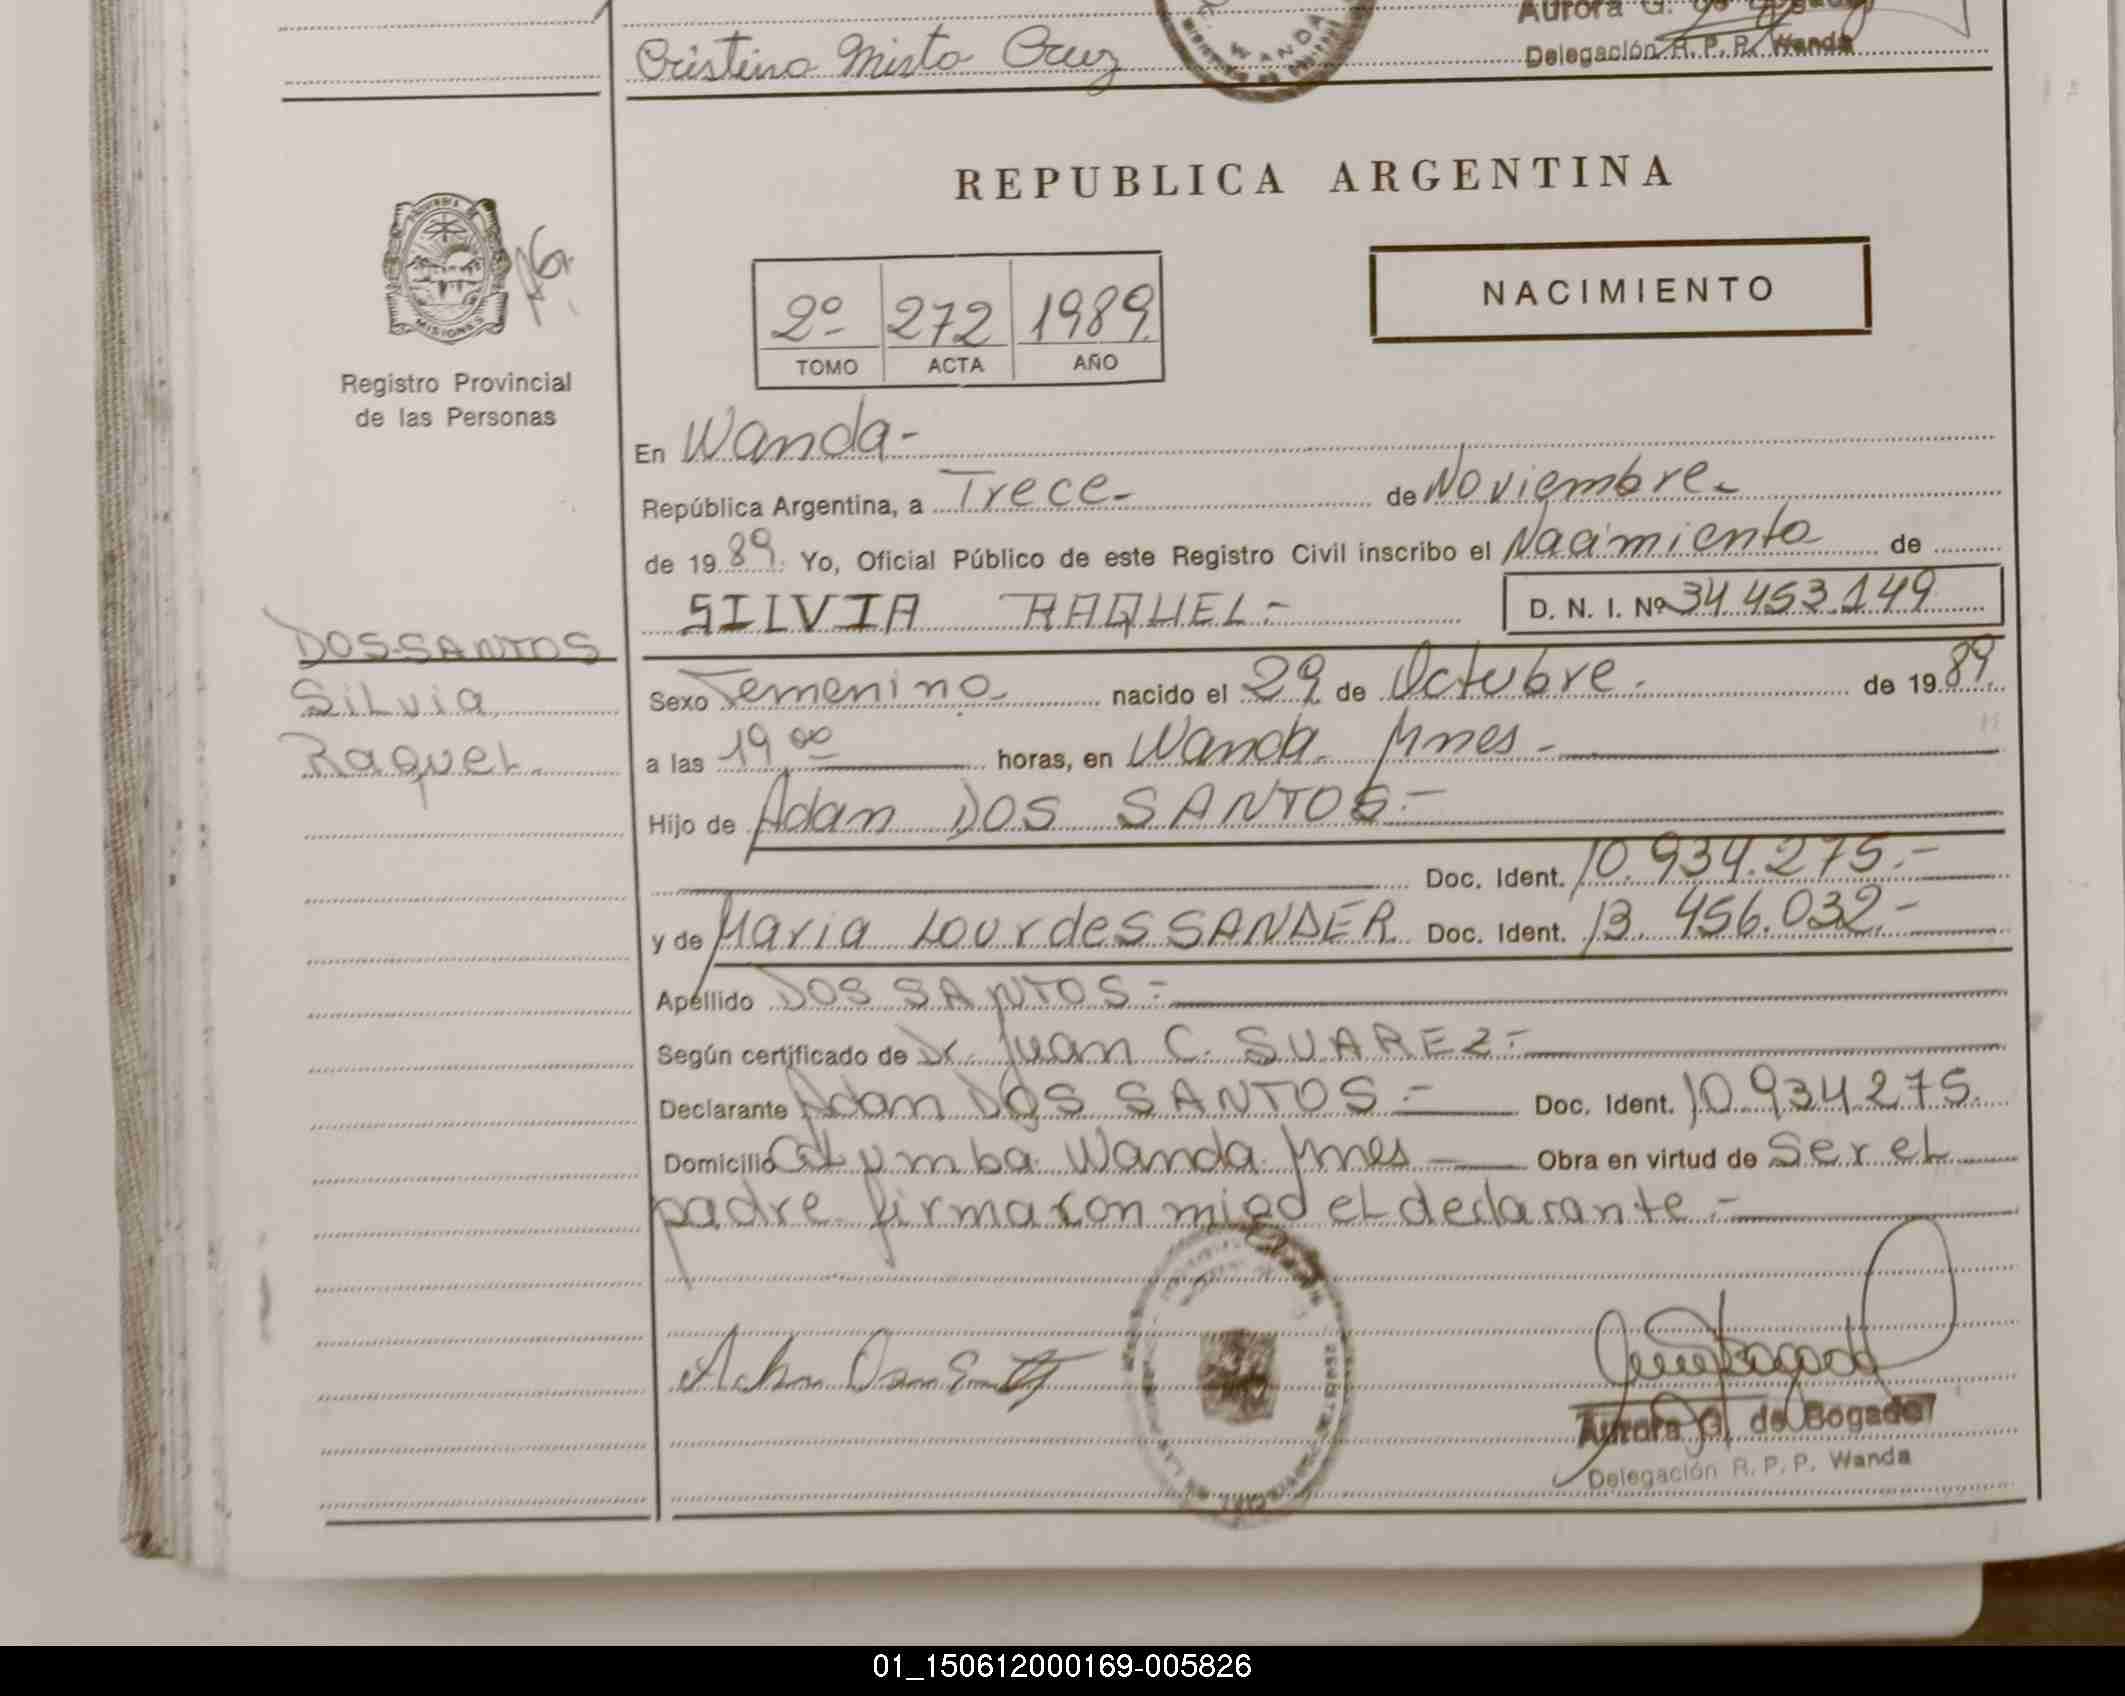 Aurora G. de Bogado
Cristina Misto Cruz
WANDA
Delegación R. P. P. Wanda
REPUBLICA ARGENTINA
NACIMIENTO
2º 272 1989.
TOMO ACTA AÑO
MISIONES
Registro Provincial
de las Personas
En Wanda-
República Argentina, a Trece- de Noviembre-
de 1989. Yo, Oficial Público de este Registro Civil inscribo el Nacimiento de
SILVIA RAQUEL.- D. N. I. Nº 34.453.149
DOS SANTOS
Silvia
Raquel.
Sexo Femenino. nacido el 29 de Octubre. de 1989.
a las 19 00 horas, en Wanda. Mnes-
Hijo de Adan DOS SANTOS.-
Doc. Ident. 10.934.275.-
y de Maria Lourdes SANDER Doc. Ident. 13.456.032.-
Apellido DOS SANTOS.-
Según certificado de Dr. Juan C. SUAREZ.-
Declarante Adan DOS SANTOS.- Doc. Ident. 10.934.275.
Domicilio Wanda. Mnes Obra en virtud de ser el
padre firma con migo el declarante.-
Aurora G. de Bogado
Delegación R. P. P. Wanda
01_150612000169-005826